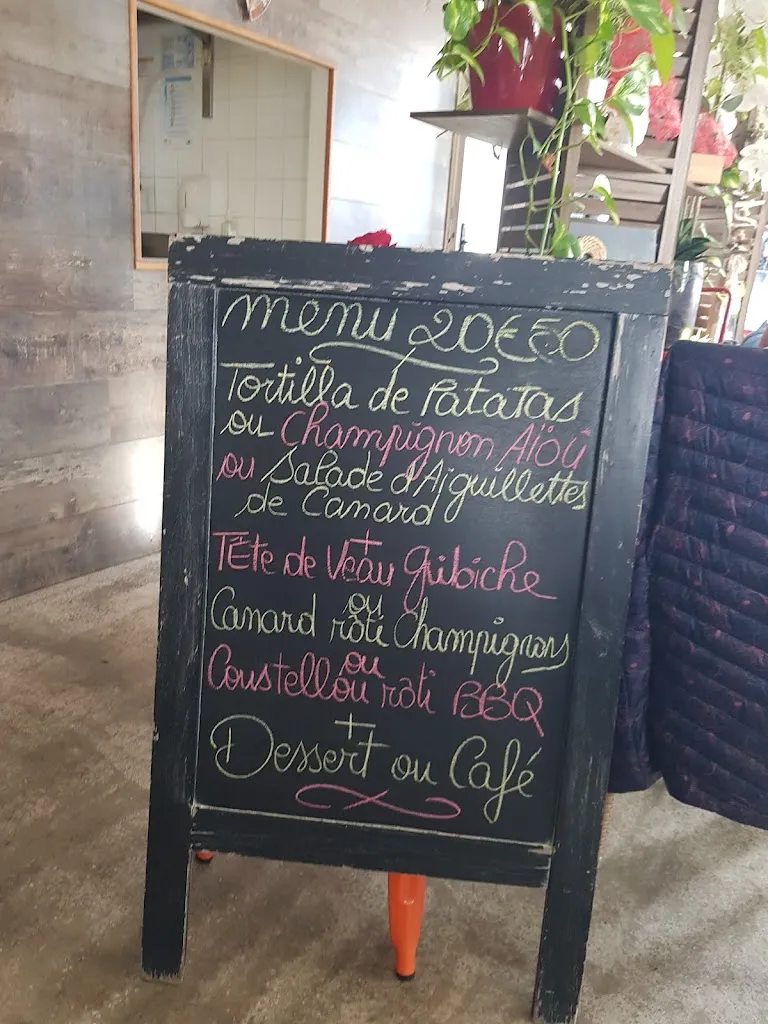 menu 20€50
Tortilla de Patatas
ou Champignon Aïoli
ou Salade d'Aiguillettes
de Canard
+
Tête de Veau Gribiche
ou
Canard rôti Champignons
ou
Coustellou rôti BBQ
+
Dessert ou Café